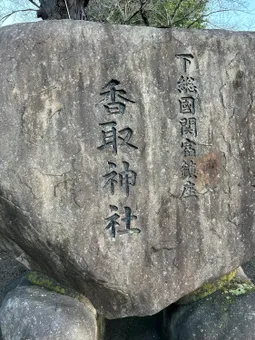 下総國関宿鎮座
香取神社